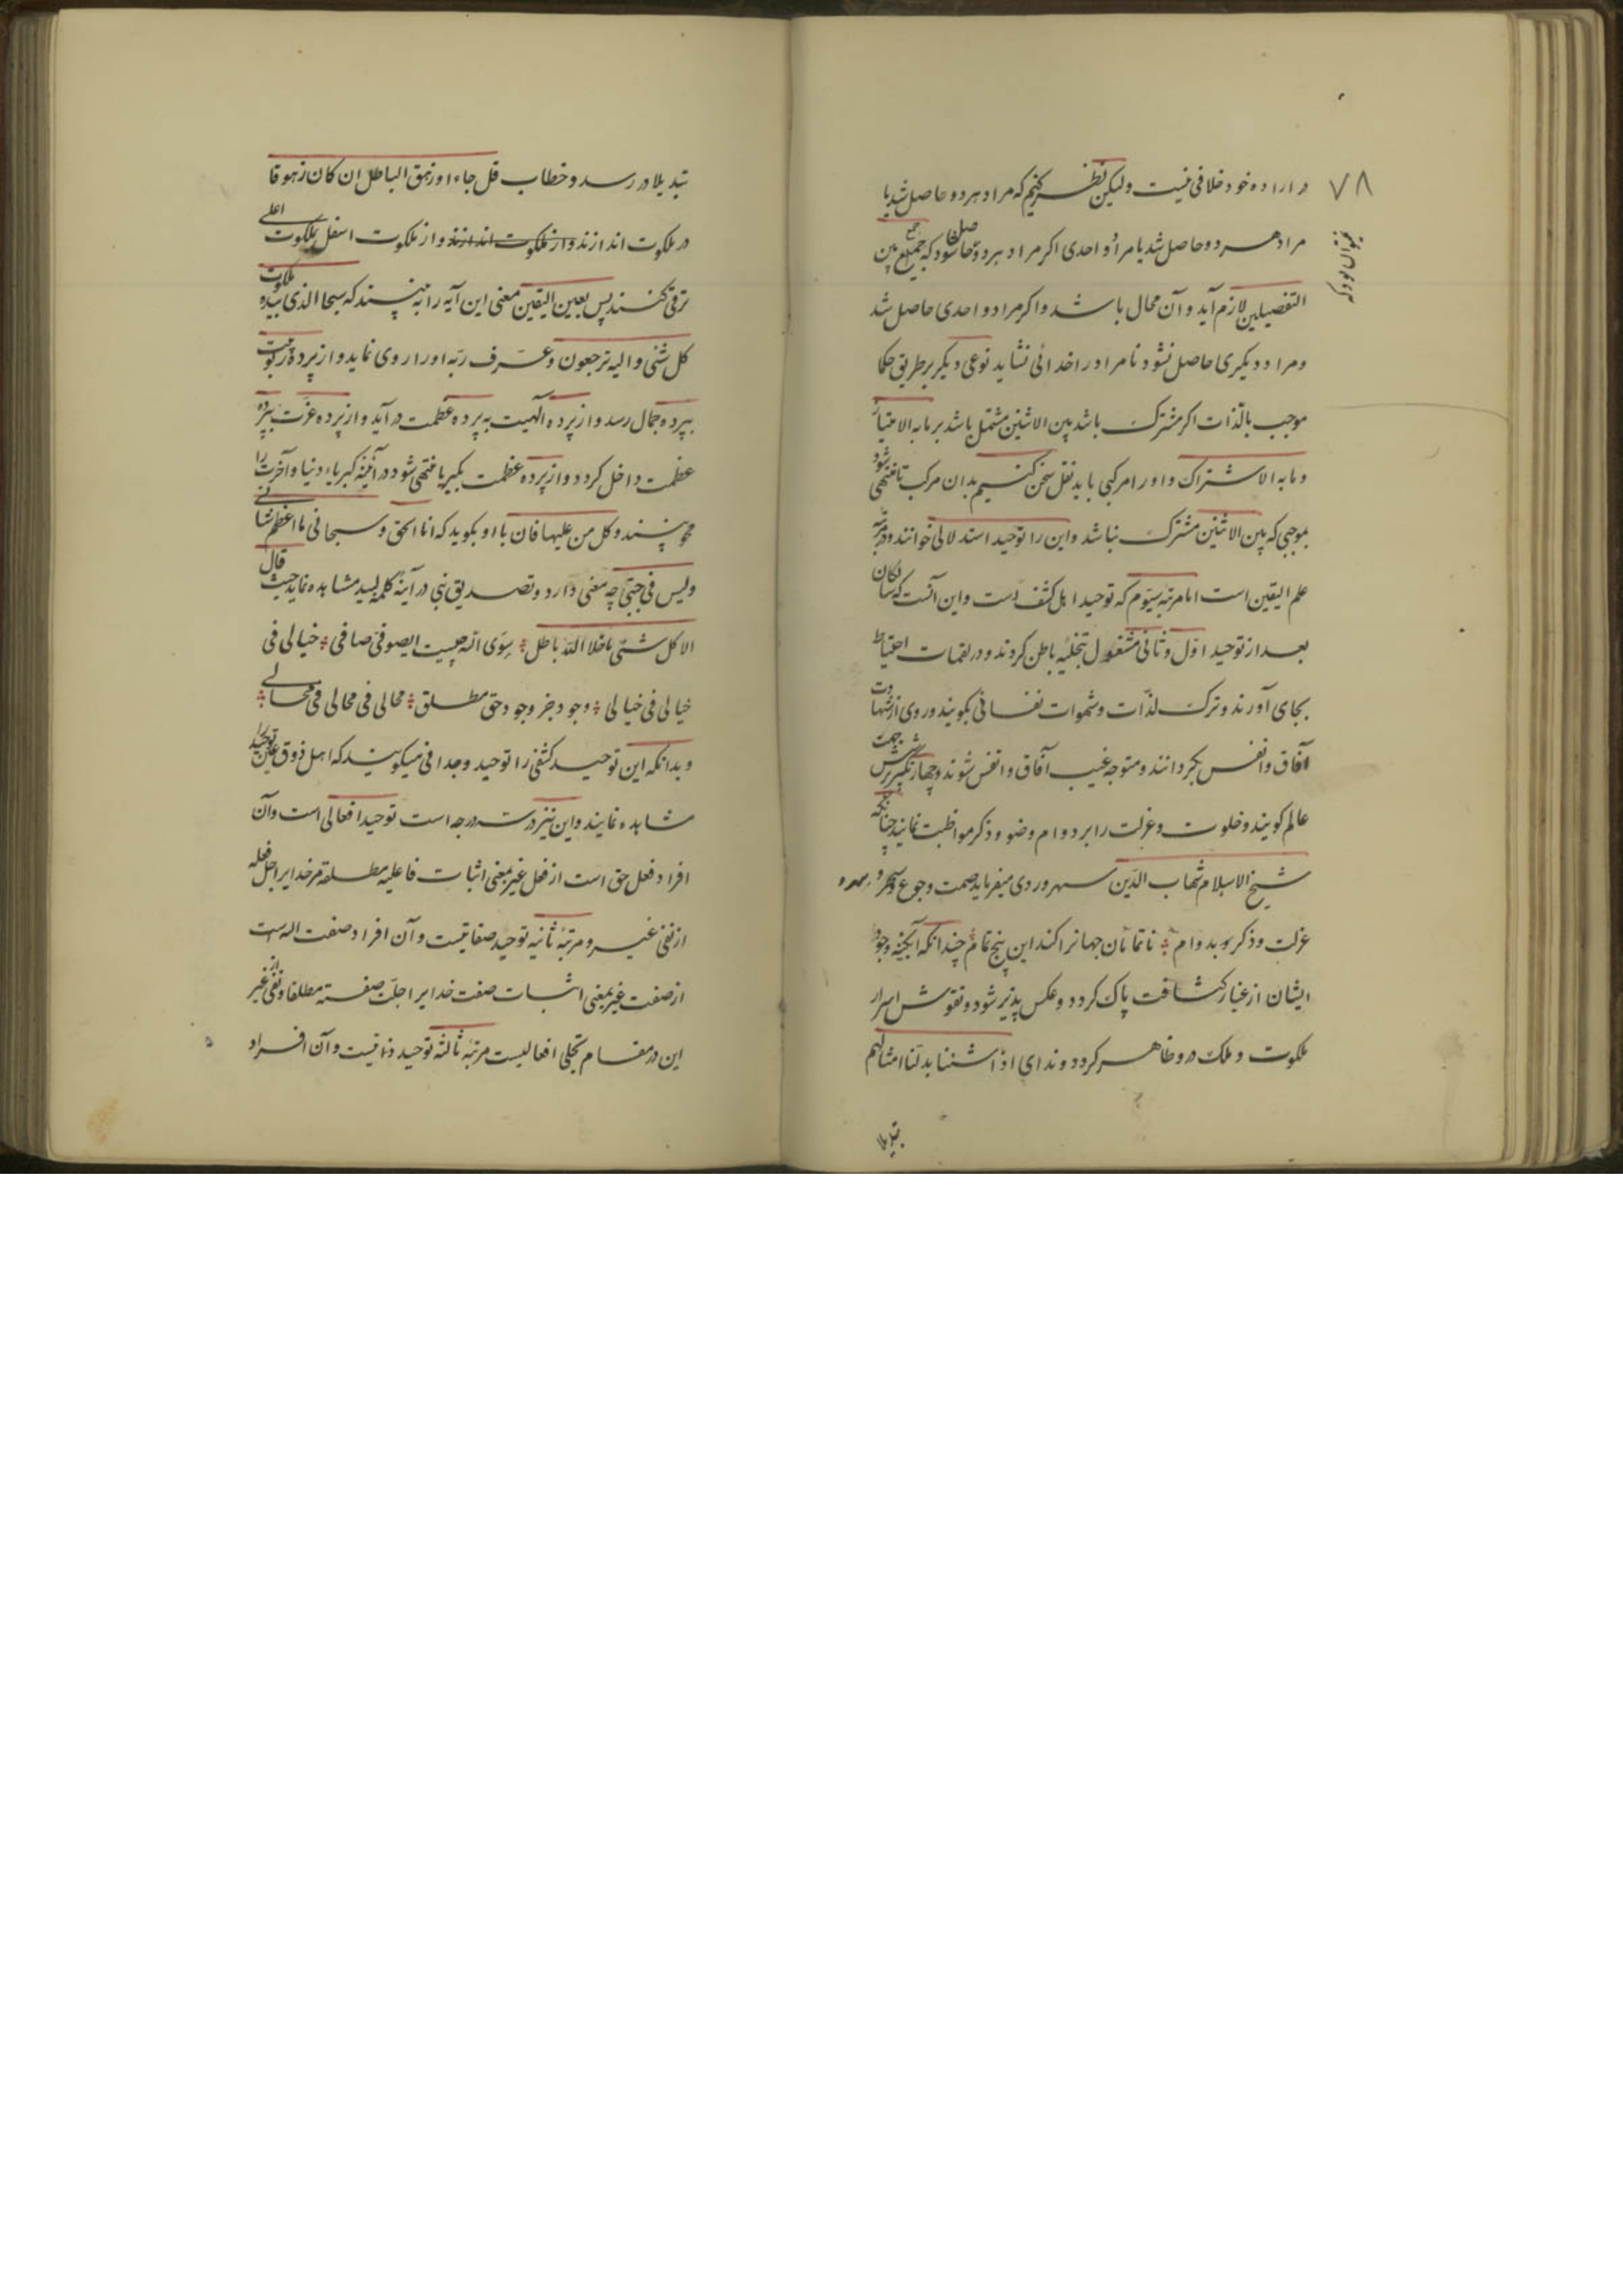 ۷۸
در اراده خود خلافی نیست ولیکن نظر کنیم که مراد هر دو حاصل شد یا
مراد هر دو حاصل شد یا مراد واحدی اکر مراد هر دو حاصل شود که جمیع بین
التفصیلین لازم آید و آن محال باشد و اکر مراد واحدی حاصل شد
و مراد دیکری حاصل نشود نامراد را خدائی نشاید نوعی دیکر بر طریق حکما
موجب بالذات اکر مشترک باشد بین الاثنین مشتمل باشد بر مابه الامتیاز
و مابه الاشتراک و او را مرکبی باید نقل سخن کنیم بدان مرکب تا منتهی شود
بموجبی که بین الاثنین مشترک نباشد و این را توحید استدلالی خوانند و در مرتبه
علم الیقین است اما مرتبه سیوم که توحید اهل کشف است و این آنست که سالکان
بعد از توحید اول و ثانی مشغول بتخلیه باطن کردند و در لقمات احتیاط
بجای آورند و ترک لذات و شهوات نفسانی بکویند و روی از شهادت
آفاق و انفس بکردانند و متوجه غیب آفاق و انفس شوند و چهار تکبیر بر شش جهت
عالم کویند و خلوت و عزلت را بر دوام وضو و ذکر مواظبت نمایند چنانکه
شیخ الاسلام شهاب الدین سهروردی میفرماید صمت و جوع و سهر و
عزلت و ذکر بدوام ؛ ناتمامان جهانرا کند این پنج تمام چندانکه آبکینه وجود
ایشان از غبار کثافت پاک کردد و عکس پذیر شود و نقوش اسرار
ملکوت و ملک در و ظاهر کردد و ندای اذا شئنا بدلنا امثالهم
تبدیلا
تبدیلا در رسد و خطاب قل جاء اورزهق الباطل ان کان زهوقا
در ملکوت اندازند و از ملکوت اندازند و از ملکوت اسفل بملکوت اعلی
ترقی کنند پس بعین الیقین معنی این آیه را به بینند که سبحا الذی بیده ملکوت
کل شئی و الیه ترجعون و عرف ربه او را روی نماید و از پرده ربوبیت
بپرده جمال رسد و از پرده الهیت به پرده عظمت در آید و از پرده عزت بپرده
عظمت داخل کردد و از پرده عظمت بکبریا منتهی شود در آئینه کبریاء دنیا و آخرت را
محو بینند و کل من علیها فان با او بکوید که انا الحق و سبحانی ما اعظم شانی
و لیس فی جبتی چه معنی دارد و تصدیق نبی در آینه کلمه لبید مشاهده نماید حیث قال
الا کل شئی ماخلا الله باطل ؛ سوی الله چیست ایصوفی صافی ؛ خیالی فی
خیالی فی خیالی ؛ وجود جز وجود حق مطلق ؛ محالی فی محالی فی محالی ؛
و بدانکه این توحید کشفی را توحید وجدانی میکویند که اهل ذوق عین توحید
مشاهده نمایند و این نیز در سه درجه است توحید افعالی است و آن
افراد فعل حق است از فعل غیر بمعنی اثبات فاعلیه مطلقه مر خدایرا جل فعله
از نفی غیر و مرتبه ثانیه توحید صفاتیست و آن افراد صفت اله است
از صفت غیر بمعنی اثبات صفت خدایرا جلت صفته مطلقا و نفی از غیر
این در مقام تجلی افعالیست مرتبه ثالثه توحید ذاتیست و آن افراد